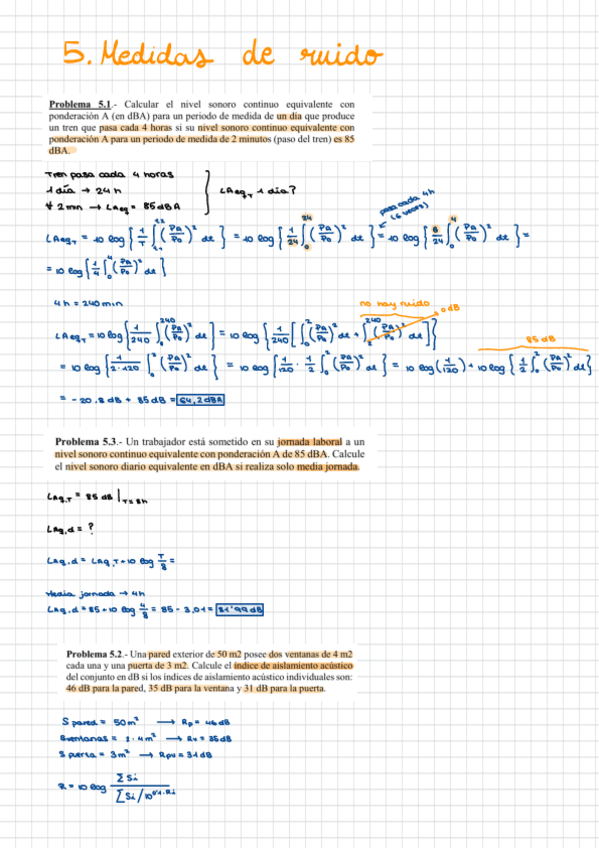 5. Medidas de ruido
Problema 5.1.- Calcular el nivel sonoro continuo equivalente con
ponderación A (en dBA) para un periodo de medida de un día que produce
un tren que pasa cada 4 horas si su nivel sonoro continuo equivalente con
ponderación A para un periodo de medida de 2 minutos (paso del tren) es 85
dBA.
Tren pasa cada 4 horas
1 día → 24 h
∀ 2 min → LAeq = 85 dBA
LAeq,T 1 día?
pasa cada 4h
(6 veces)
LAeq,T = 10 log { 1/T ∫_{t1}^{t2} (PA/P0)² dt } = 10 log { 1/24 ∫_0^{24} (PA/P0)² dt } = 10 log { 6/24 ∫_0^4 (PA/P0)² dt } =
= 10 log { 1/4 ∫_0^4 (PA/P0)² dt }
4h = 240 min
no hay ruido
0 dB
LAeq,T = 10 log { 1/240 ∫_0^{240} (PA/P0)² dt } = 10 log { 1/240 [ ∫_0^2 (PA/P0)² dt + ∫_2^{240} (PA/P0)² dt ] }
85 dB
= 10 log { 1/(2·120) ∫_0^2 (PA/P0)² dt } = 10 log { 1/120 · 1/2 ∫_0^2 (PA/P0)² dt } = 10 log (1/120) + 10 log { 1/2 ∫_0^2 (PA/P0)² dt }
= -20.8 dB + 85 dB = 64,2 dBA
Problema 5.3.- Un trabajador está sometido en su jornada laboral a un
nivel sonoro continuo equivalente con ponderación A de 85 dBA. Calcule
el nivel sonoro diario equivalente en dBA si realiza solo media jornada.
LAq,T = 85 dB | T = 8h
LAq,d = ?
LAq,d = LAq,T + 10 log T/8 =
Media jornada → 4h
LAq,d = 85 + 10 log 4/8 = 85 - 3,01 = 81'99 dB
Problema 5.2.- Una pared exterior de 50 m2 posee dos ventanas de 4 m2
cada una y una puerta de 3 m2. Calcule el índice de aislamiento acústico
del conjunto en dB si los índices de aislamiento acústico individuales son:
46 dB para la pared, 35 dB para la ventana y 31 dB para la puerta.
S pared = 50 m² → Rp = 46 dB
S ventanas = 2·4 m² → Rv = 35 dB
S puerta = 3 m² → Rpu = 31 dB
R = 10 log Σ Si / Σ Si/10^{0'1·Ri}